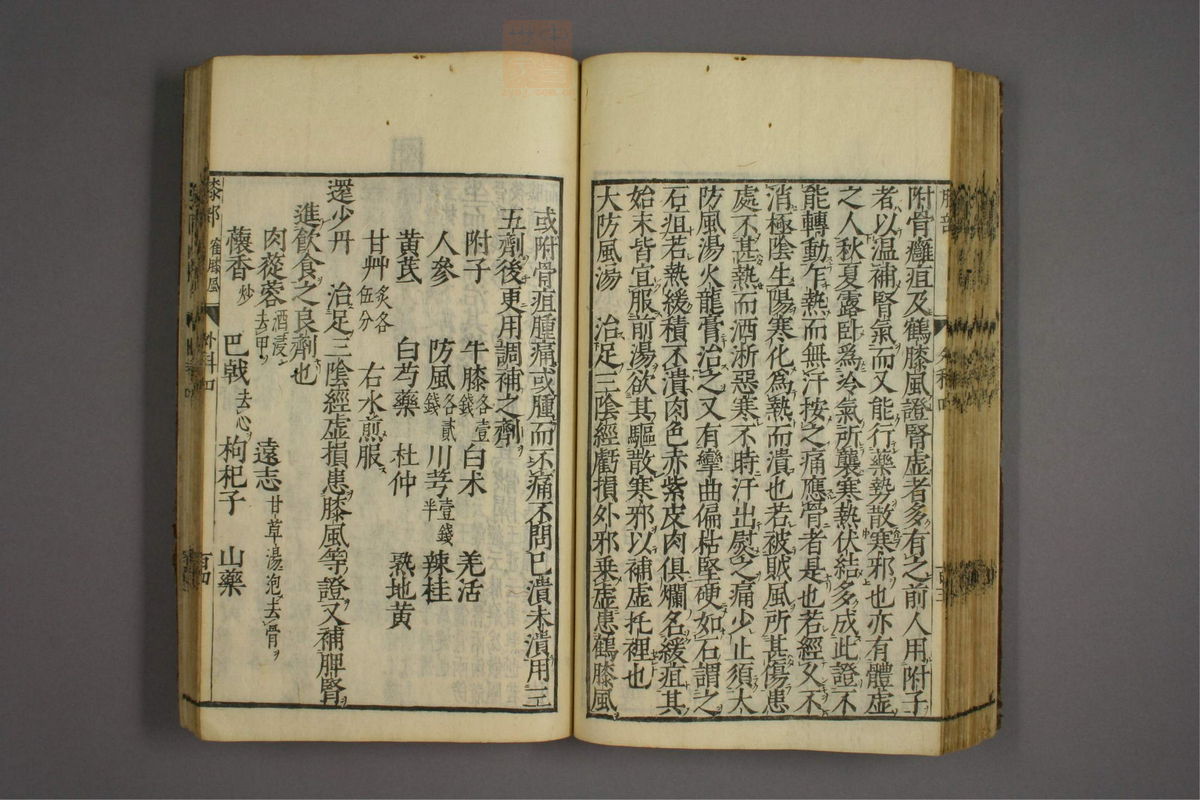 附骨癰疽及鶴膝風證腎虛者多有之前人用附子
者以温補腎氣而又能行藥勢散寒邪也亦有體虛
之人秋夏露卧爲冷氣所襲寒熱伏結多成此證不
能轉動乍熱而無汗按之痛應骨者是也若經久不
消極陰生陽寒化爲熱而潰也若被賊風所甚傷患
處不甚熱而洒淅惡寒不時汗出熨之痛少止須大
防風湯火龍膏治之又有攣曲偏枯堅硬如石謂之
石疽若熱緩積不潰肉色赤紫皮肉俱爛名緩疽其
始末皆宜服前湯欲其驅散寒邪以補虛托裡也
大防風湯　治足三陰經虧損外邪乗虛患鶴膝風
或附骨疽腫痛或腫而不痛不問已潰未潰用三
五劑後更用調補之劑
附子　牛膝各壹錢　白术　羌活
人參　防風各貳錢　川芎壹錢半　辣桂
黃芪　白芍藥　杜仲　熟地黄
甘艸炙各伍分　右水煎服
還少丹　治足三陰經虛損患膝風等證又補脾腎
進飲食之良劑也
肉蓯蓉酒浸去甲　遠志甘草湯泡去骨
蘹香炒　巴戟去心　枸杞子　山藥
膝部　外科四　百四